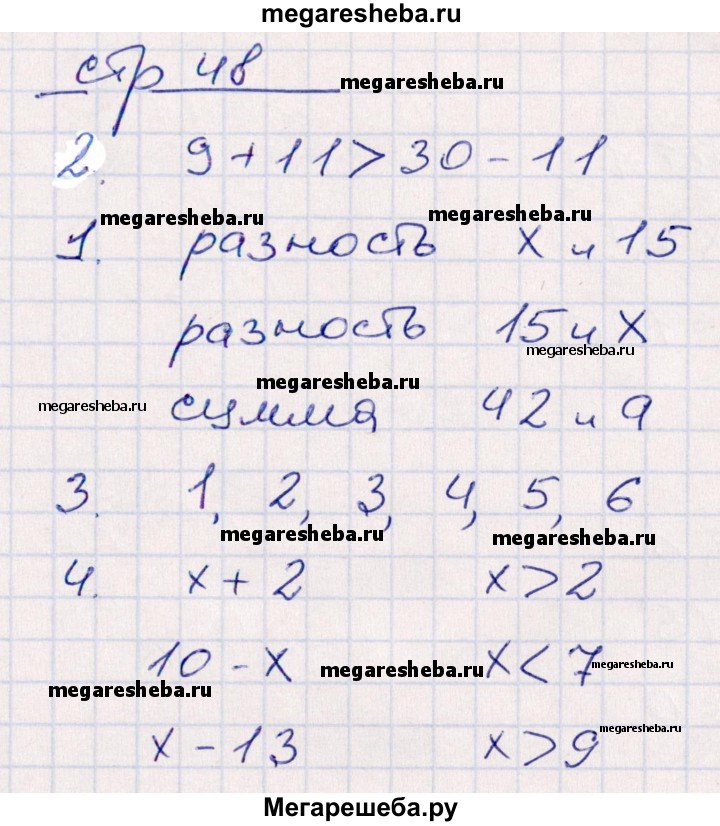 megaresheba.ru
стр 48 megaresheba.ru
2. 9 + 11 > 30 - 11
megaresheba.ru megaresheba.ru
1. разность х и 15
разность 15 и х
megaresheba.ru
megaresheba.ru
megaresheba.ru сумма 42 и а
3. 1, 2, 3, 4, 5, 6
megaresheba.ru megaresheba.ru
4. х + 2 х > 2
10 - х megaresheba.ru х < 7 megaresheba.ru
megaresheba.ru
х - 13 х > 9 megaresheba.ru
Мегарешеба.ру